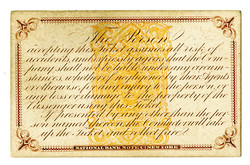 The Person
accepting this Ticket assumes all risk of
accidents, and expressly agrees that the Com-
pany shall not be liable under any circum-
stances, whether of negligence by their Agents
or otherwise, for any injury to the person, or
for any loss or injury to the property of the
Passenger using this Ticket.
If presented by any other than the per-
son named thereon, the Conductor will take
up this Ticket and collect fare.
NATIONAL BANK NOTE CO. NEW YORK